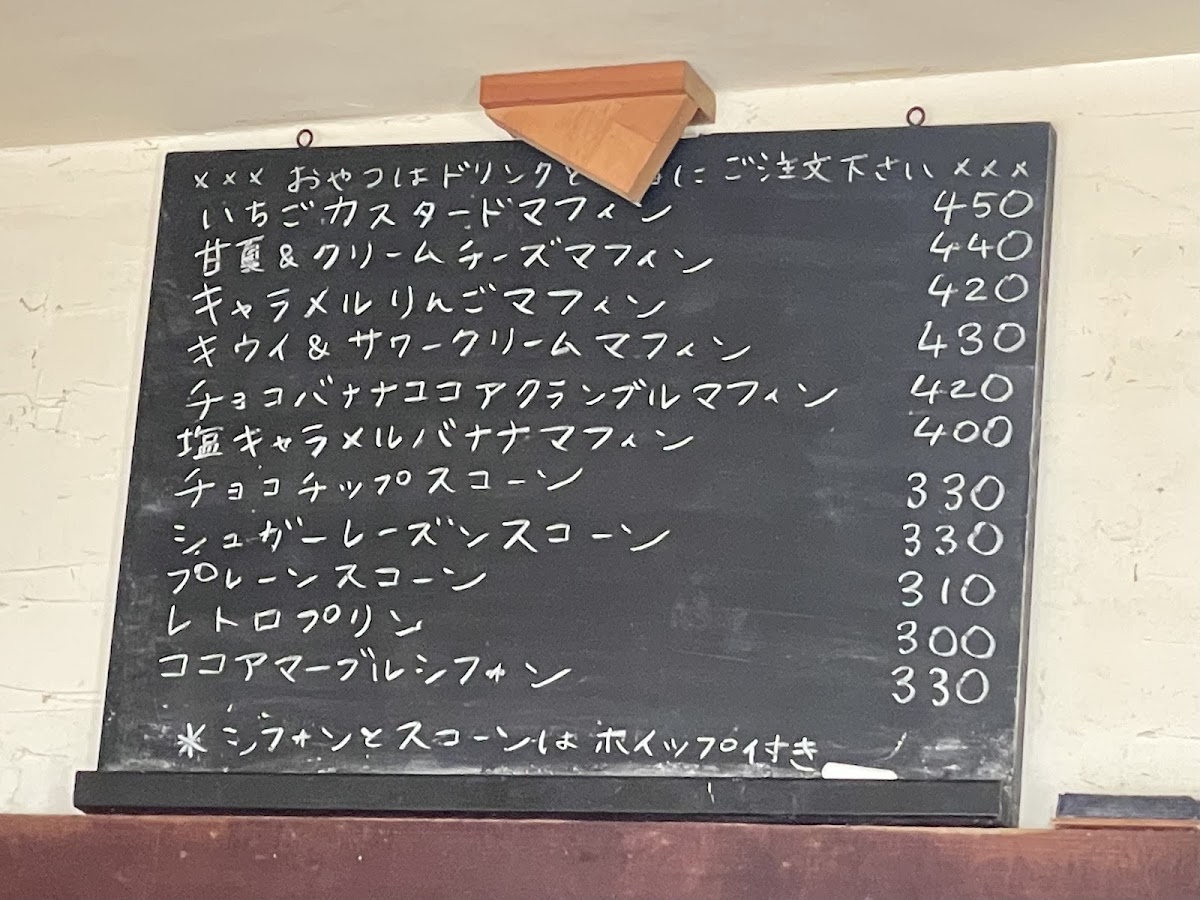 ××× おやつはドリンクと に ご注文下さい ×××
いちごカスタードマフィン 450
甘夏&クリームチーズマフィン 440
キャラメルりんごマフィン 420
キウイ&サワークリームマフィン 430
チョコバナナココアクランブルマフィン 420
塩キャラメルバナナマフィン 400
チョコチップスコーン 330
シュガーレーズンスコーン 330
プレーンスコーン 310
レトロプリン 300
ココアマーブルシフォン 330
* シフォンとスコーンはホイップ付き